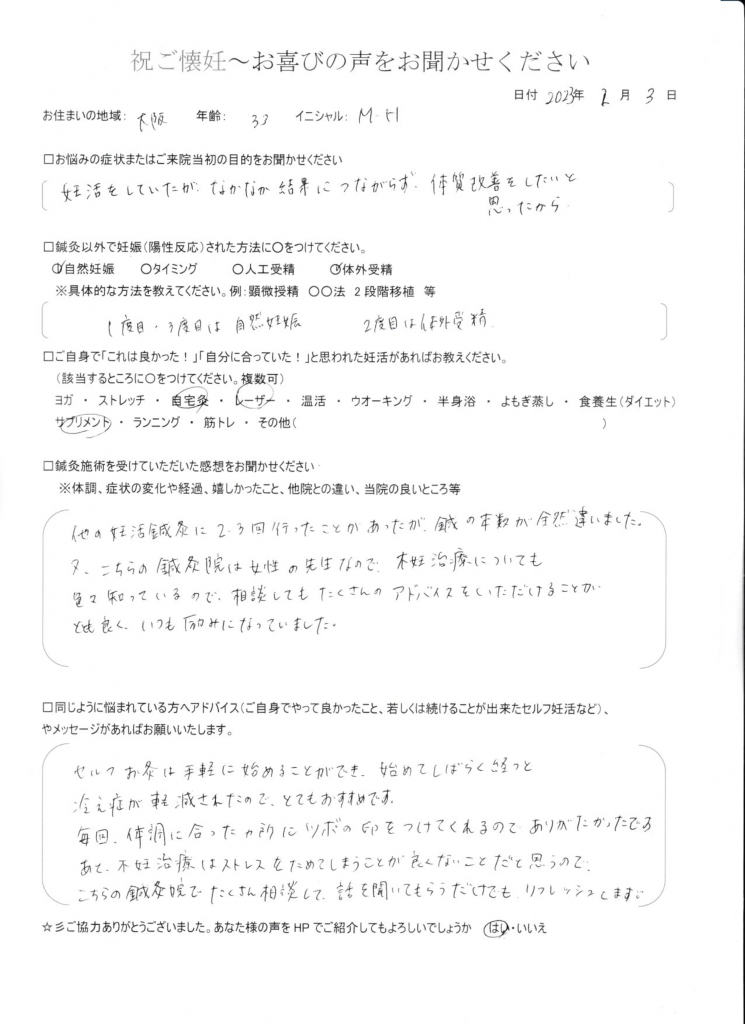 祝ご懐妊～お喜びの声をお聞かせください
日付 2023年 2月 3日
お住まいの地域: 大阪 年齢: 33 イニシャル: M・H
□お悩みの症状またはご来院当初の目的をお聞かせください
妊活をしていたが、なかなか結果につながらず、体質改善をしたいと
思ったから
□鍼灸以外で妊娠(陽性反応)された方法に○をつけてください。
○自然妊娠 ○タイミング ○人工受精 ○体外受精
※具体的な方法を教えてください。例:顕微授精 ○○法 2段階移植 等
1度目・3度目は自然妊娠 2度目は体外受精
□ご自身で「これは良かった！」「自分に合っていた！」と思われた妊活があればお教えください。
(該当するところに○をつけてください。複数可)
ヨガ ・ ストレッチ ・ 自宅灸 ・ レーザー ・ 温活 ・ ウオーキング ・ 半身浴 ・ よもぎ蒸し ・ 食養生(ダイエット)
サプリメント ・ ランニング ・ 筋トレ ・ その他( )
□鍼灸施術を受けていただいた感想をお聞かせください
※体調、症状の変化や経過、嬉しかったこと、他院との違い、当院の良いところ等
他の妊活鍼灸に2、3回行ったことがあったが、鍼の本数が全然違いました。
又、こちらの鍼灸院は女性の先生なので、不妊治療についても
色々知っているので、相談してもたくさんのアドバイスをいただけることが
とも良く、いつも励みになっていました。
□同じように悩まれている方へアドバイス(ご自身でやって良かったこと、若しくは続けることが出来たセルフ妊活など)、
やメッセージがあればお願いいたします。
セルフお灸は手軽に始めることができ、始めてしばらく経つと
冷え症が軽減されたので、とてもおすすめです。
毎回、体調に合ったヵ所にツボの印をつけてくれるのでありがたかったです
あと、不妊治療はストレスをためてしまうことが良くないことだと思うので、
こちらの鍼灸院でたくさん相談して、話を聞いてもらうだけでも、リフレッシュします。
☆彡ご協力ありがとうございました。あなた様の声をHPでご紹介してもよろしいでしょうか はい・いいえ